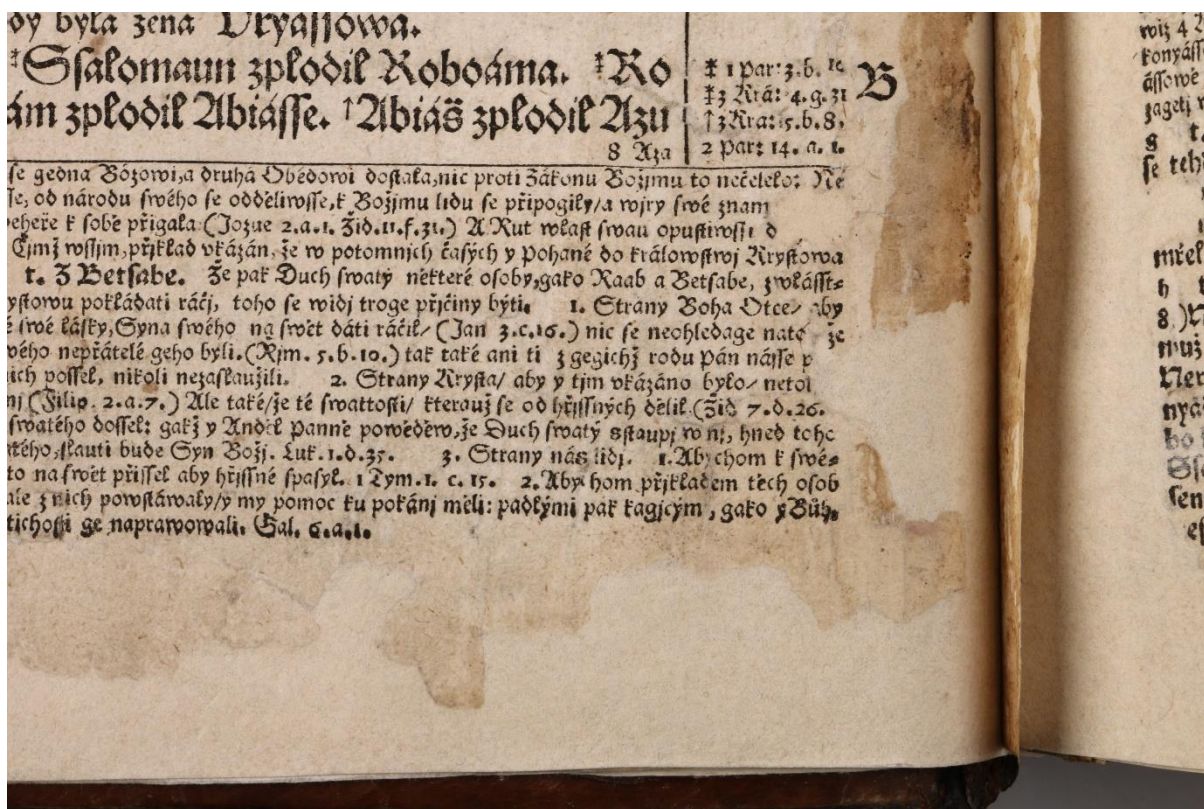 dy byla žena Vryássowa.
‡Ssalomaun zplodil Roboáma. ‡Ro
ám zplodil Abiásse. †Abiáš zplodil Azu
8 Aza
‡ 1 Par: 3. b. 10
‡ 3 Krá: 4. g. 31
† 3 Kra: 5. b. 8.
2 Par: 14. a. 1.
B
se gedna Bózowi, a druhá Obédowi dostala, nic proti Zákonu Božjmu to nečelelo: Ne
se, od národu swého se odděliwsse, k Božjmu lidu se připogily/ a wjry swé znam
pehere k sobě přigala (Jozue 2. a. 1. Žid. 11. f. 31.) A Rut wlast swau opustiwssi d
Čjmž wssjm, přjklad vkázán, že w potomnjch časých y Pohané do králowstwj Krystowa
t. Z Betsabe. Že pak Duch swatý některé osoby, gako Raab a Betsabe, zwlásst=
ystowu pokládati ráčj, toho se widj troge přjčiny býti. 1. Strany Boha Otce/ aby
é swé lásky, Syna swého na swět dáti ráčil/ (Jan 3. c. 16.) nic se neohledage na to že
wého nepřátelé geho byli. (Ržjm. 5. b. 10.) tak také ani ti z gegichž rodu Pán násse p
ich possel, nikoli nezaslaužili. 2. Strany Krysta/ aby y tjm vkázáno bylo/ netol
nj (Filip. 2. a. 7.) Ale také/ že té swattosti/ kterauž se od hřjssných dělil. (Žid 7. d. 26.
swatého dossel: gakž y Anděl Panně powěděw, že Duch swatý sstaupj w nj, hned tohc
atého, slauti bude Syn Božj. Luk. 1. d. 35. 3. Strany nás lidj. 1. Abychom k swé=
to na swět přissel aby hřjssné spasyl. 1 Tym. 1. c. 15. 2. Abychom přjkladem těch osob
ale z nich powstáwaly/ y my pomoc ku pokánj měli: padlými pak kagjcým, gako y Bůh,
tichosti ge naprawowali. Gal. 6. a. 1.
wiz 4
konyáss
ássowé
zagetj
g t.
se teh
mřel
h
8.) N
muž
Ner
nyá
bo
Ss
sen
es